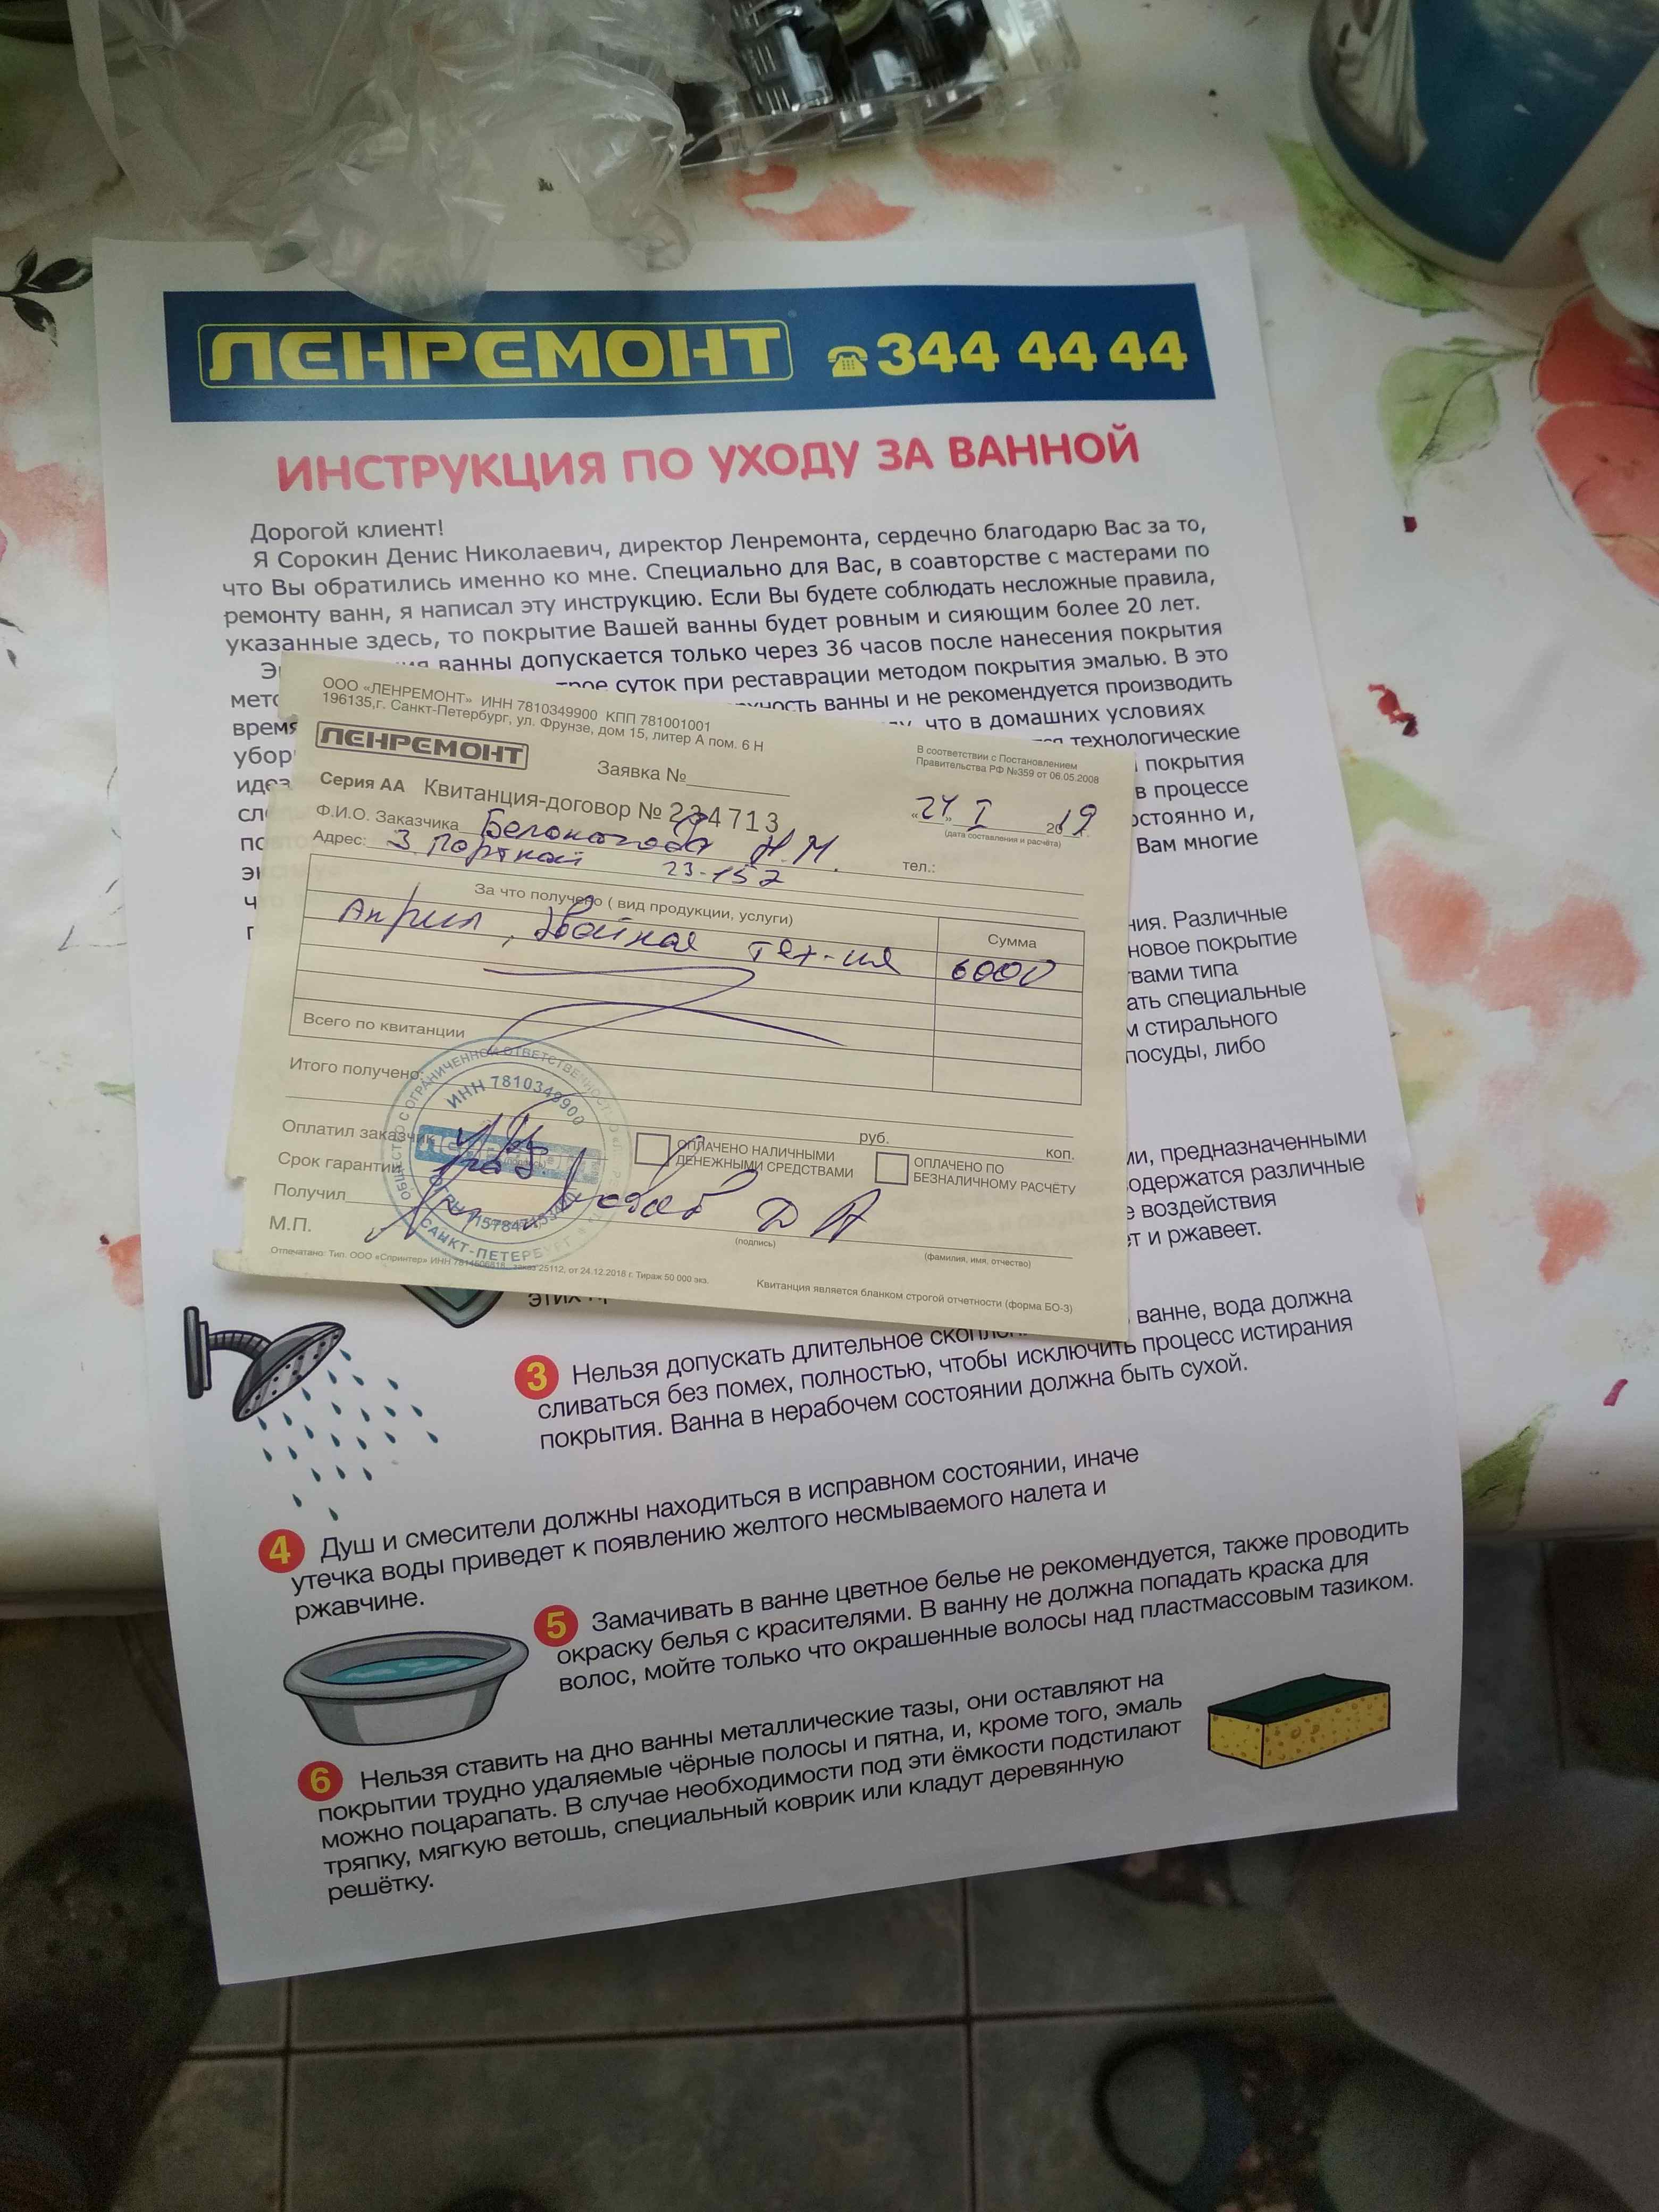 ЛЕНРЕМОНТ 344 44 44
ИНСТРУКЦИЯ ПО УХОДУ ЗА ВАННОЙ
Дорогой клиент!
Я Сорокин Денис Николаевич, директор Ленремонта, сердечно благодарю Вас за то,
что Вы обратились именно ко мне. Специально для Вас, в соавторстве с мастерами по
ремонту ванн, я написал эту инструкцию. Если Вы будете соблюдать несложные правила,
указанные здесь, то покрытие Вашей ванны будет ровным и сияющим более 20 лет.
ванны допускается только через 36 часов после нанесения покрытия
суток при реставрации методом покрытия эмалью. В это
ванны и не рекомендуется производить
время что в домашних условиях
технологические
покрытия
в процессе
Вам многие
Различные
новое покрытие
типа
специальные
стирального
посуды, либо
предназначенными
различные
воздействия
и ржавеет.
ООО «ЛЕНРЕМОНТ» ИНН 7810349900 КПП 781001001
196135,г. Санкт-Петербург, ул. Фрунзе, дом 15, литер А пом. 6 Н
ЛЕНРЕМОНТ
Заявка №
В соответствии с Постановлением
Правительства РФ №359 от 06.05.2008
Серия АА Квитанция-договор № 234713
«24» I 2019
(дата составления и расчёта)
Ф.И.О. Заказчика Н.М.
Адрес: 3 23-157 тел.:
За что получено ( вид продукции, услуги) Сумма
Акрил, двойная тех-ия 6000
Всего по квитанции
Итого получено:
руб. коп.
Оплатил заказчик
ОПЛАЧЕНО НАЛИЧНЫМИ
ДЕНЕЖНЫМИ СРЕДСТВАМИ
ОПЛАЧЕНО ПО
БЕЗНАЛИЧНОМУ РАСЧЁТУ
Срок гарантии
Получил Д А
(подпись) (фамилия, имя, отчество)
М.П.
ИНН 7810349900
САНКТ-ПЕТЕРБУРГ
Отпечатано: Тип. ООО «Спринтер» ИНН заказ 25112, от 24.12.2018 г. Тираж 50 000 экз.
Квитанция является бланком строгой отчетности (форма БО-3)
этих
3 Нельзя допускать длительное ванне, вода должна
сливаться без помех, полностью, чтобы исключить процесс истирания
покрытия. Ванна в нерабочем состоянии должна быть сухой.
4 Душ и смесители должны находиться в исправном состоянии, иначе
утечка воды приведет к появлению желтого несмываемого налета и
ржавчине.
5 Замачивать в ванне цветное белье не рекомендуется, также проводить
окраску белья с красителями. В ванну не должна попадать краска для
волос, мойте только что окрашенные волосы над пластмассовым тазиком.
6 Нельзя ставить на дно ванны металлические тазы, они оставляют на
покрытии трудно удаляемые чёрные полосы и пятна, и, кроме того, эмаль
можно поцарапать. В случае необходимости под эти ёмкости подстилают
тряпку, мягкую ветошь, специальный коврик или кладут деревянную
решётку.